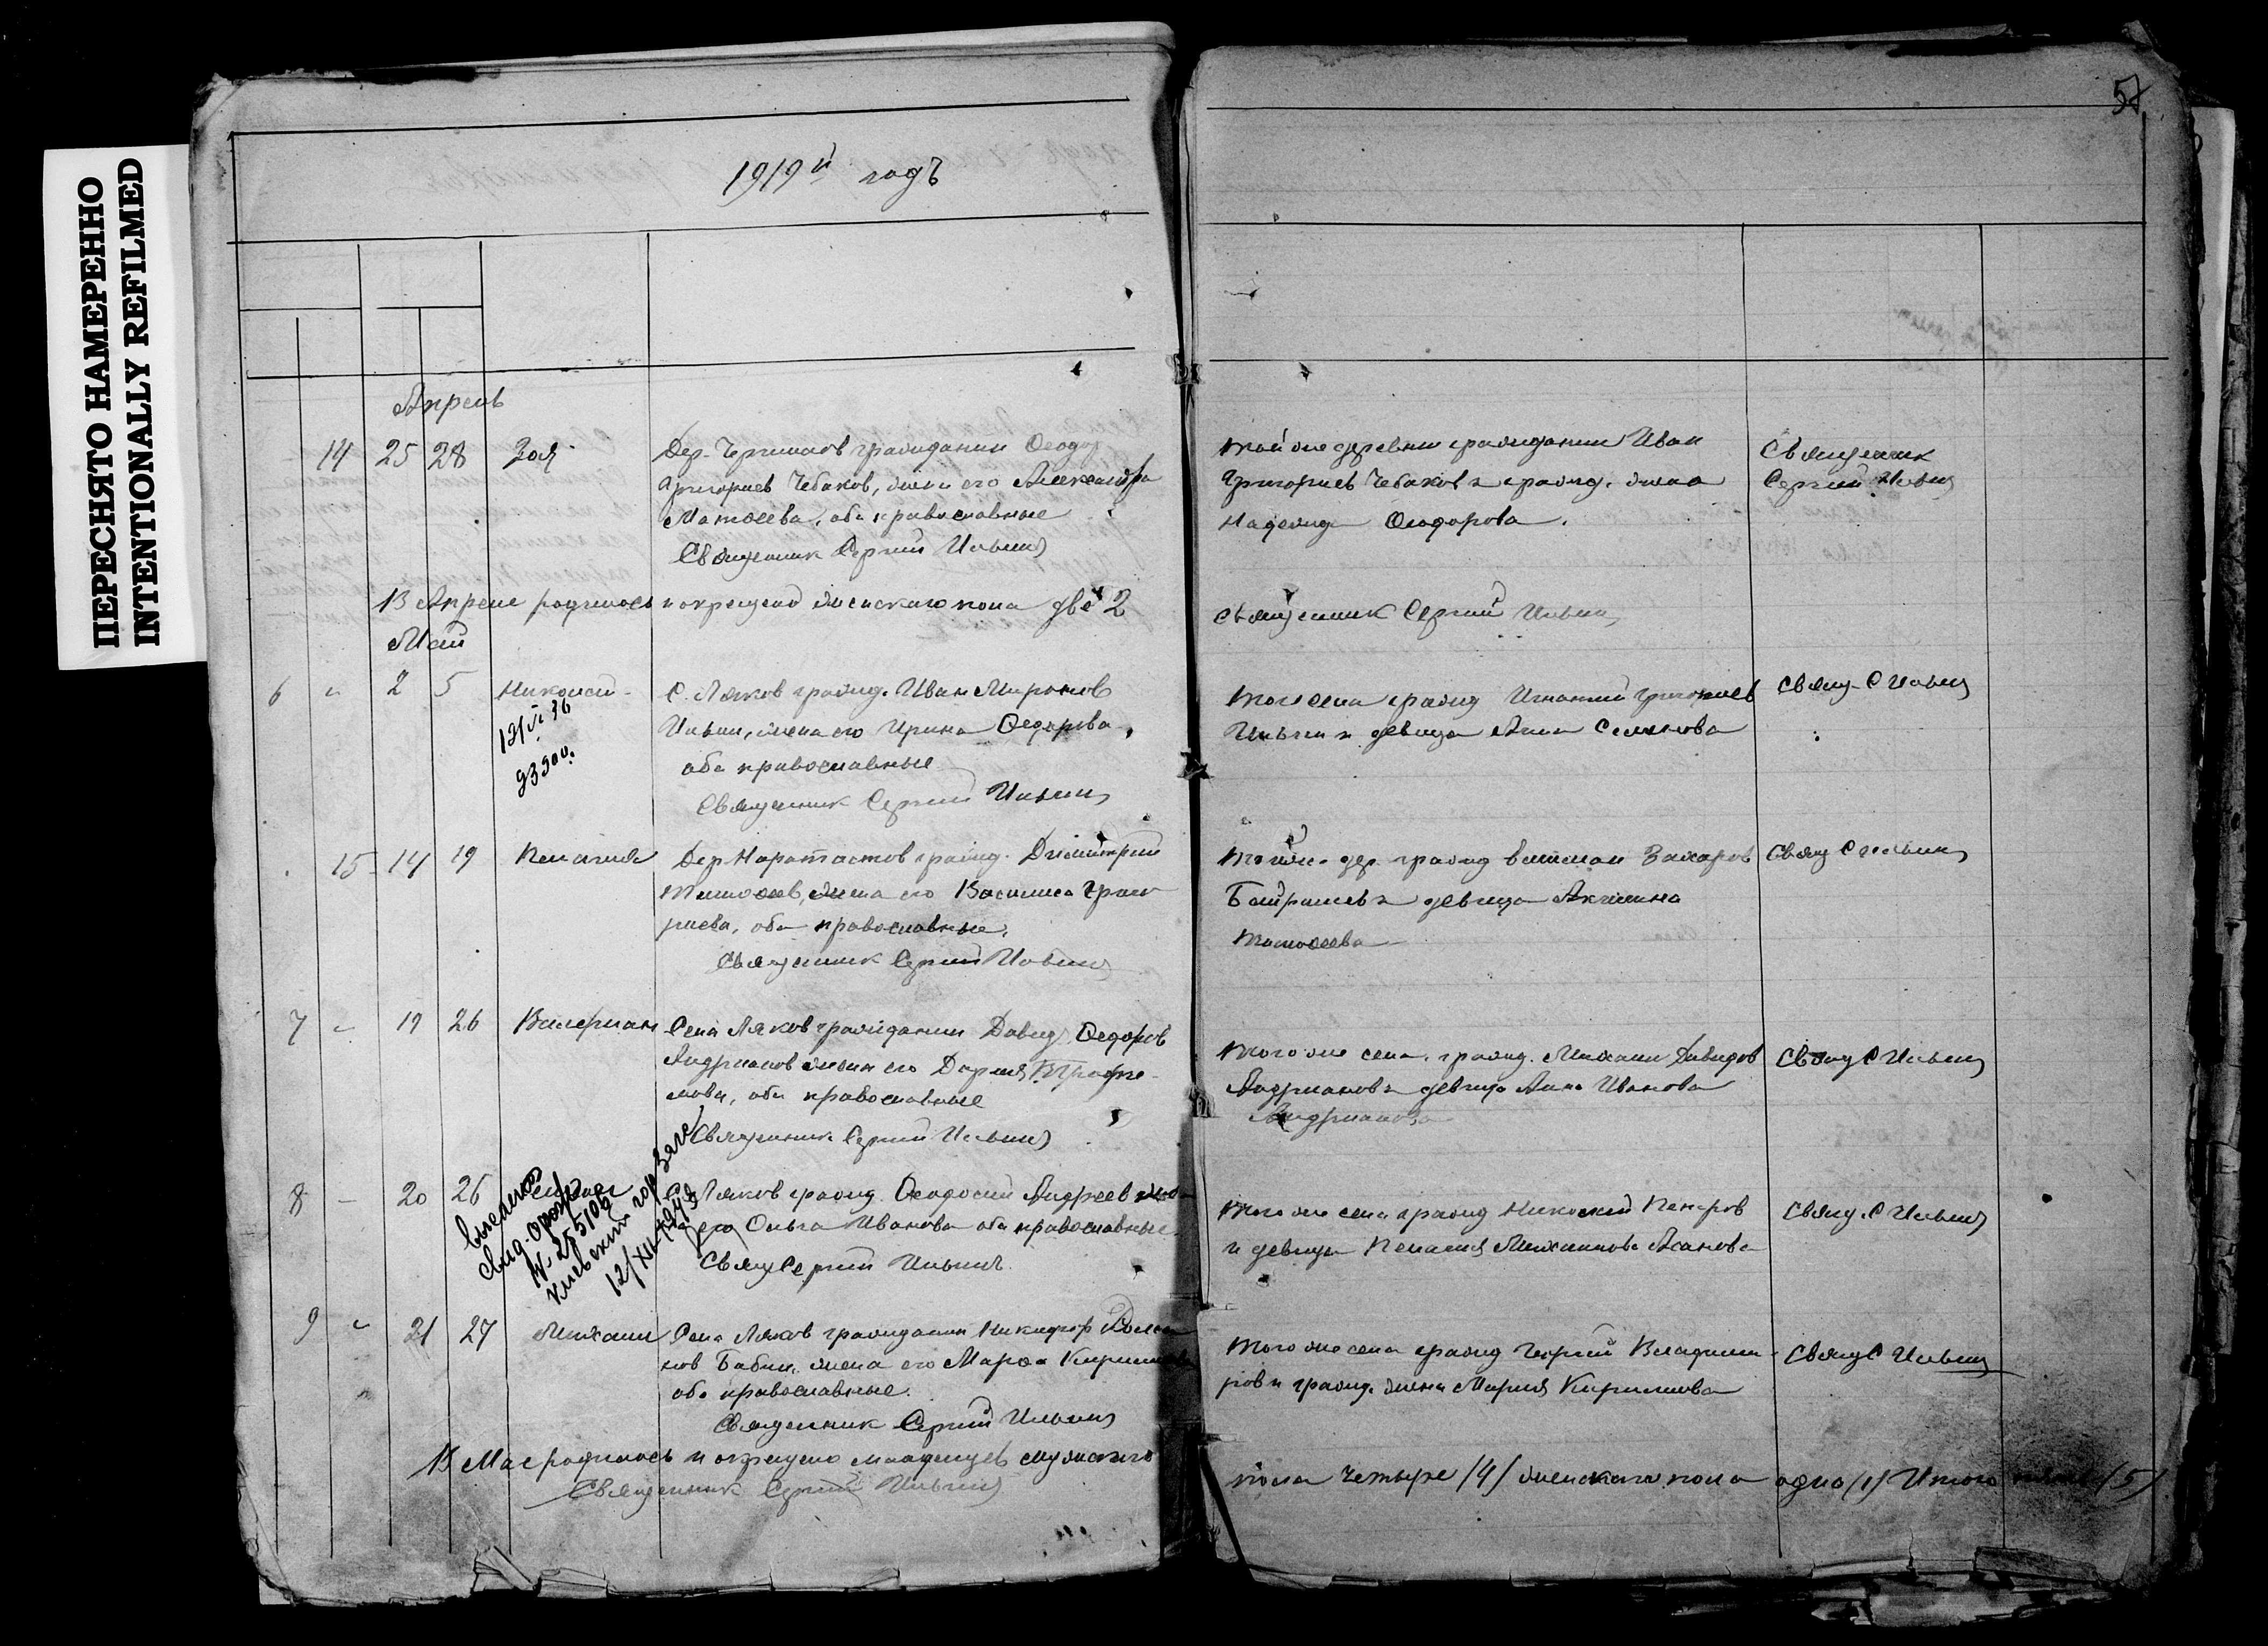 ПЕРЕСНЯТО НАМЕРЕННО
INTENTIONALLY REFILMED
57
1919й годъ
Апрель
14 25 28 Зоя
Дер. гражданин Феодор
Григориев Чебаков, жена его Александра
Матфеева, оба православные
Священник Сергий Ильин
той же деревни гражданин Иван
Григориев Чебаков и гражд. жена
Надежда Феодорова.
Священник
Сергий Ильин
В Апреле родилось и окрещено женского пола две 2
Священник Сергий Ильин
Май
6 " 2 5 Николай
С. Ляков гражд. Иван Миронов
Ильин, жена его Ирина Федорова,
оба православные
Священник Сергий Ильин
того села гражд Игнатий Григориев
Ильин и девица Анна Семенова
Свящ. С Ильин
15 14 19 Пелагия
Дер. гражд. Димитрий
Тимофеев, жена его Василиса Григо
риева, оба православные.
Священник Сергий Ильин
той же дер. гражд Захаров
и девица Акилина
Тимофеева
Свящ С Ильин
7 - 19 26 Валериан
Села Ляков гражданин Давид Федоров
Андрианов жена его Дария
мова, оба православные
Священник Сергий Ильин
того же села гражд. Михаил Давидов
Андрианов и девица Анна Иванова
Андрианова
Свящ С Ильин
8 - 20 26
С. Ляков гражд. Феодосий Андреев жена
его Ольга Иванова оба православные.
Свящ Сергий Ильин.
того же села гражд Николай Петров
и девица Пелагия Михаилова
Свящ. С Ильин
12/XII-1949
9 " 21 27 Михаил
Села Ляков гражданин Никифор
нов Бабин, жена его Марфа Кириллова
оба православные.
Священник Сергий Ильин
того же села гражд Георгий Владими
ров и гражд. жена Мария Кириллова
Свящ С Ильин
В Мае родилось и окрещено младенцев мужского
пола четыре /4/ женского пола одно (1) Итого (5)
Священник Сергий Ильин